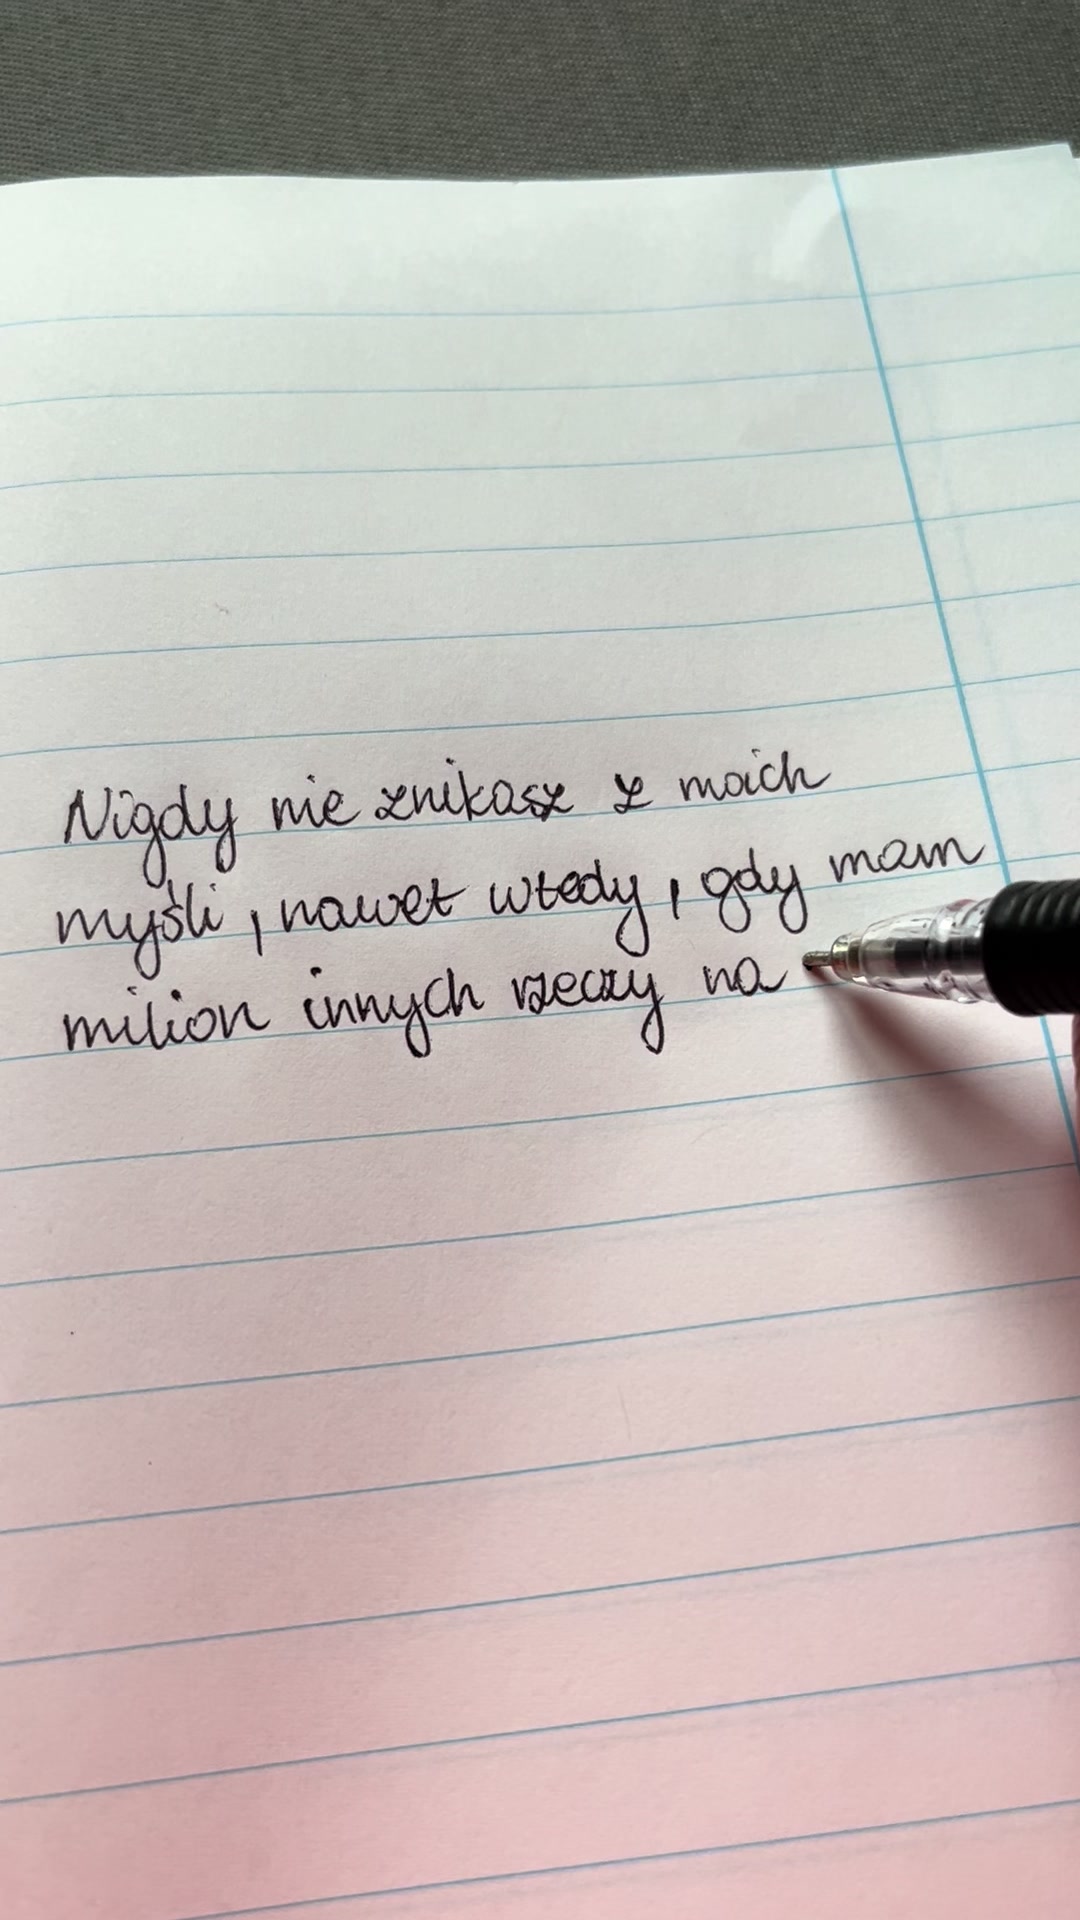 Nigdy nie znikasz z moich
myśli, nawet wtedy, gdy mam
milion innych rzeczy na